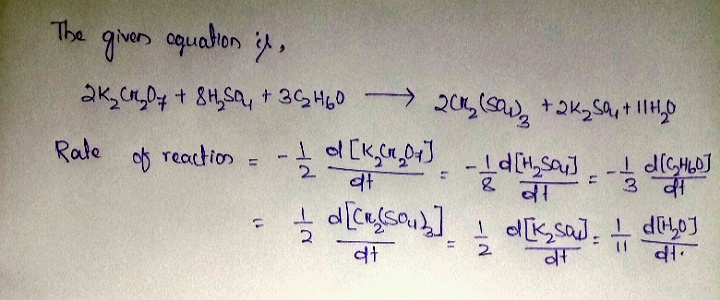 The given equation is,
2K₂Cr₂O₇ + 8H₂SO₄ + 3C₂H₆O ⟶ 2Cr₂(SO₄)₃ + 2K₂SO₄ + 11H₂O
Rate of reaction = -1/2 d[K₂Cr₂O₇]/dt = -1/8 d[H₂SO₄]/dt = -1/3 d[C₂H₆O]/dt
= 1/2 d[Cr₂(SO₄)₃]/dt = 1/2 d[K₂SO₄]/dt = 1/11 d[H₂O]/dt.